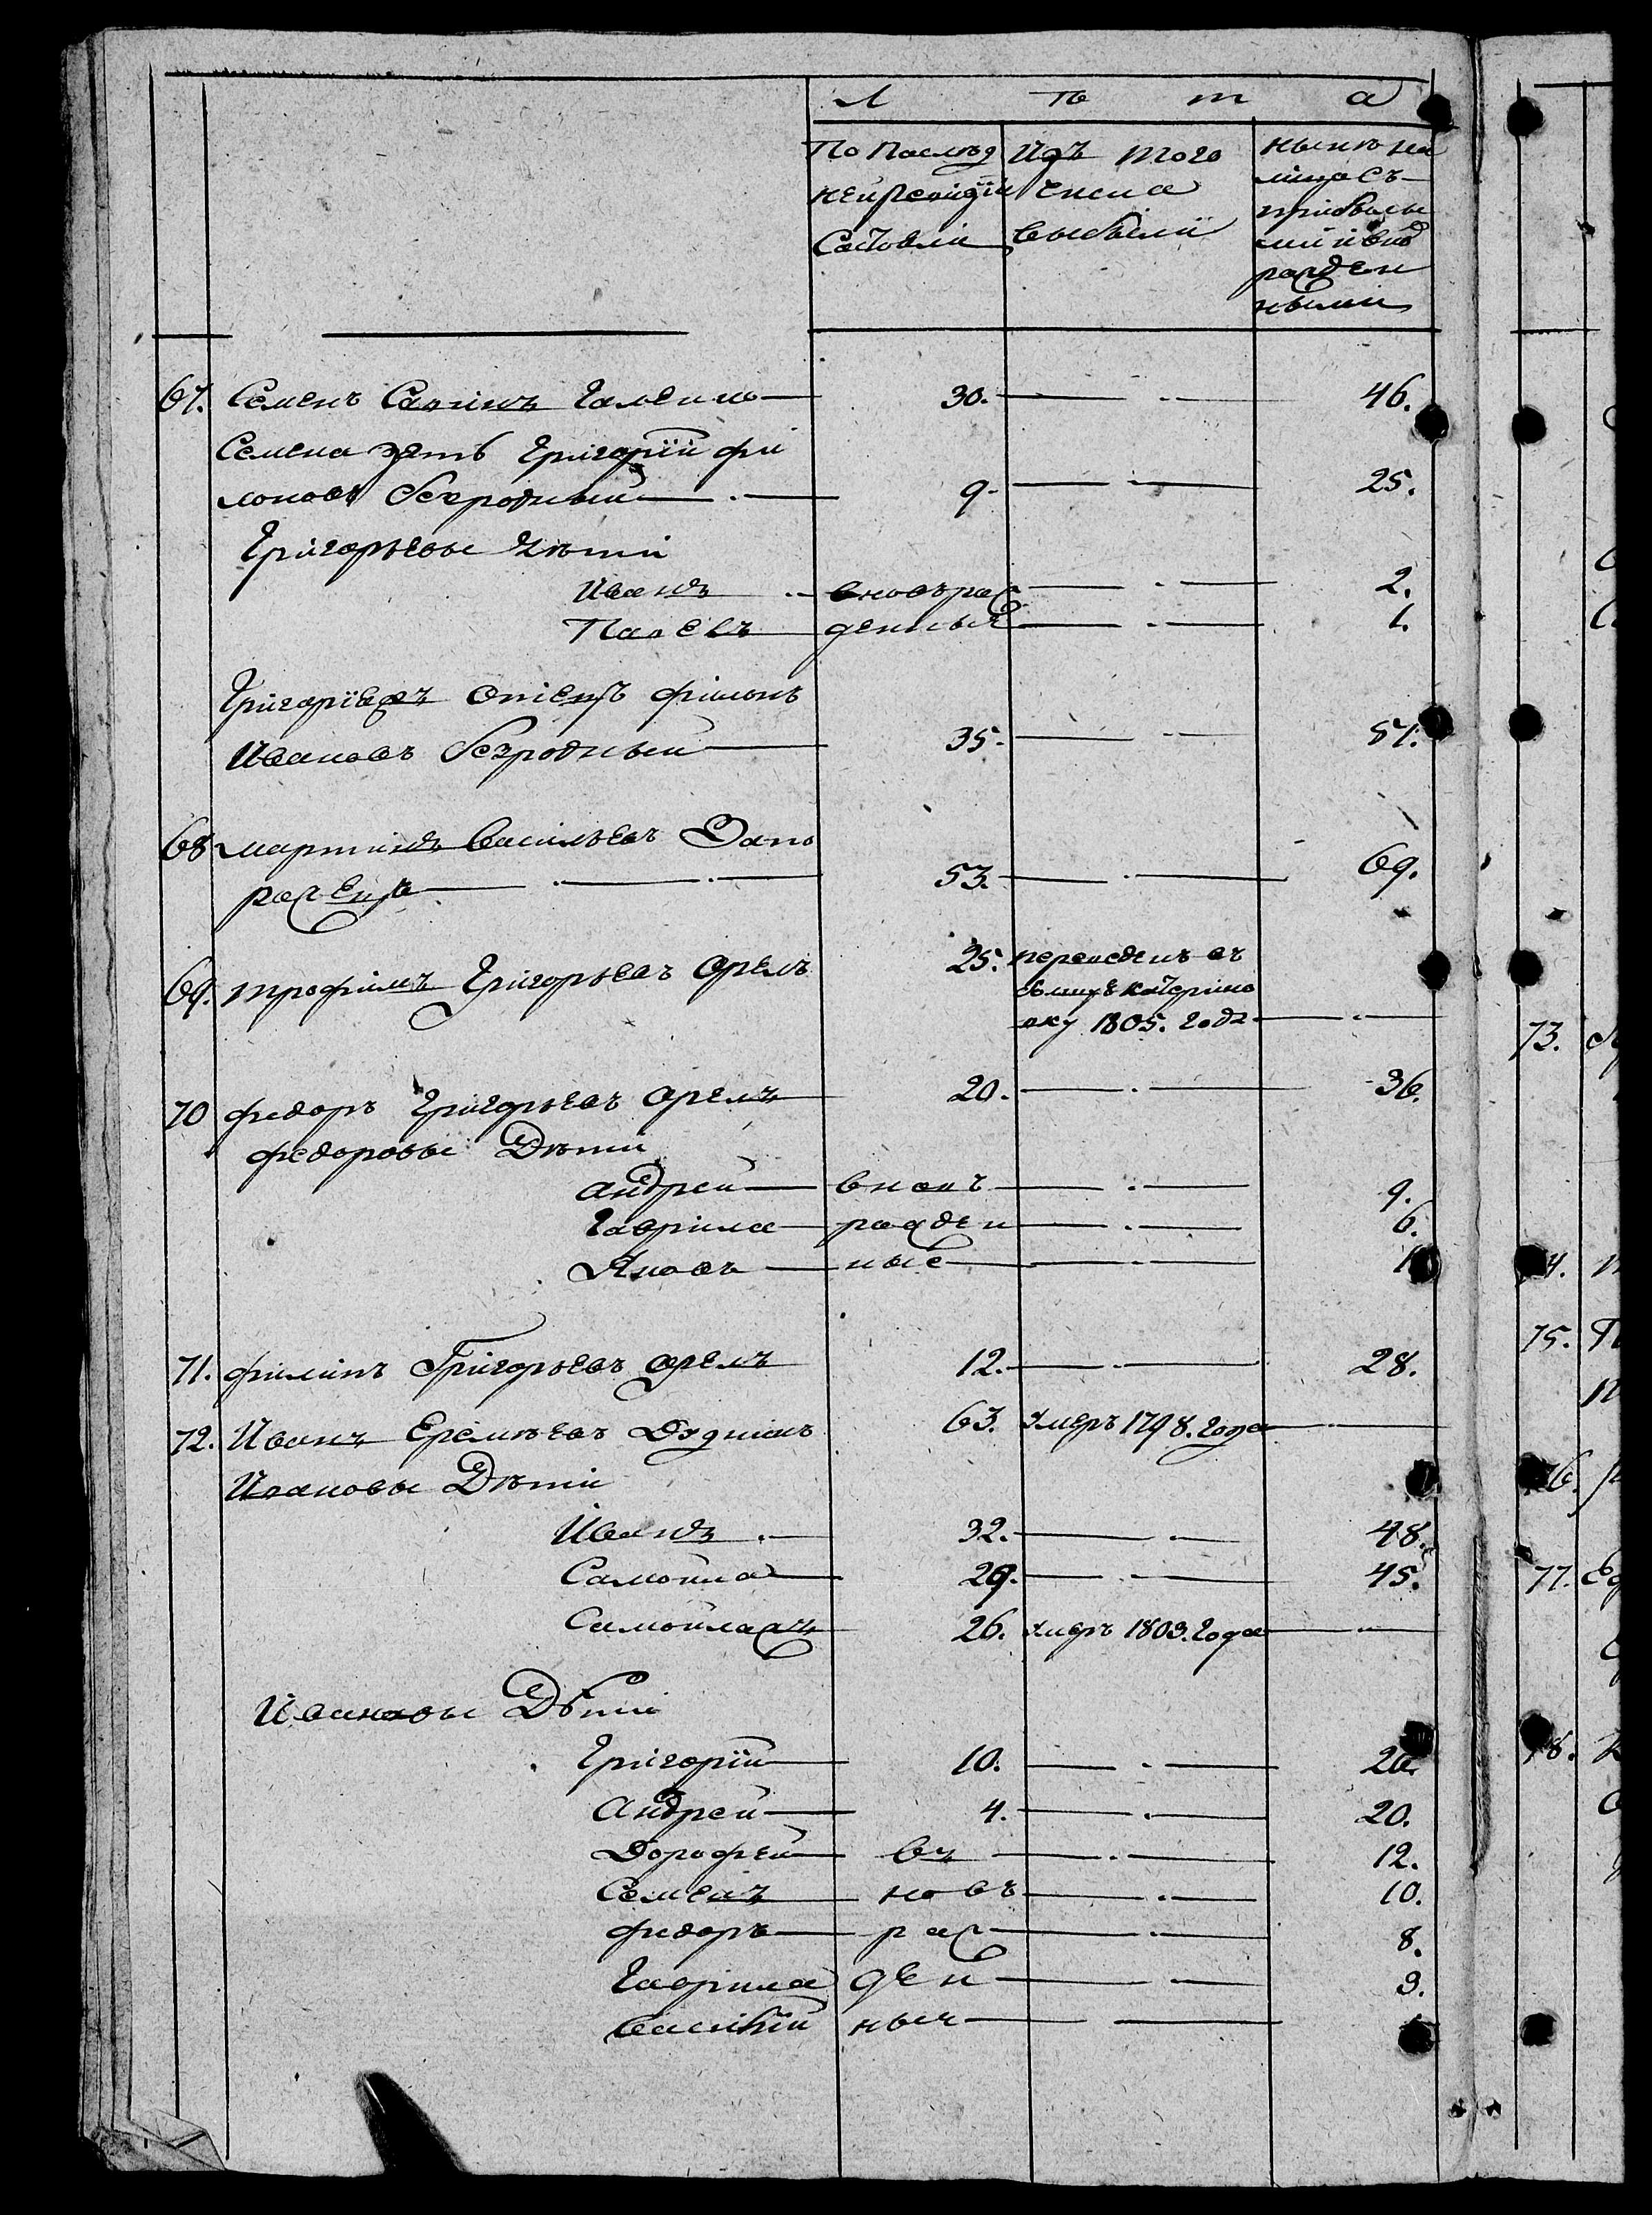 Л ѣ т а
По Послѣд Изъ того нынѣ на
ней Ревизіи числа лицо съ
Состояли выбыли прибылы
ми и внов
рожден
ными
67. Семенъ Савинъ 30. 46.
Семена зять Григорій Фи
лоновъ Безродный 9. 25.
Григорьевы дѣти
Иванъ вновьрож 2.
Павелъ денные 1.
Григоріевъ отецъ Филонъ
Ивановъ Безродный 35. 51.
68 Мартинъ Васильевъ Запо
рожецъ 53. 69.
69. Трофимъ Григорьевъ Орелъ 25. переведенъ въ
оку 1805. года
70 Федоръ Григорьевъ Орелъ 20. 36.
Федоровы Дѣти
Андрей вновъ 9.
Гаврила рожден 6.
Яковъ ные 1
71. Филипъ Григорьевъ Орелъ 12. 28.
72. Иванъ Еремѣевъ Дудникъ 63. умеръ 1798. года
Ивановы Дѣти
Иванъ 32. 48.
Самойла 29. 45.
26. умеръ 1803. года
Ивановы Дѣти
Григорій 10. 26.
Андрей 4. 20.
Дорофей въ 12.
Семенъ новъ 10.
Федоръ рож 8.
Гаврила ден 3.
Василій ные
73.
74.
75.
76.
77.
78.